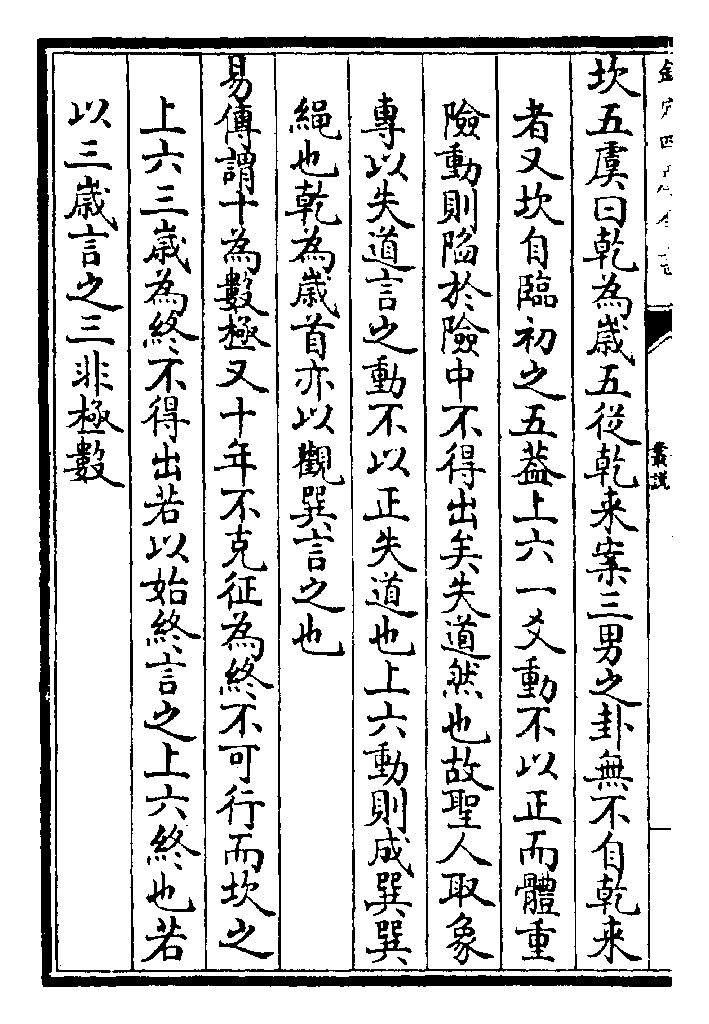 欽定四庫全書
叢說
坎五虞曰乾為歲五從乾来案三男之卦無不自乾来
者又坎自臨初之五葢上六一爻動不以正而體重
險動則陷於險中不得出矣失道然也故聖人取象
專以失道言之動不以正失道也上六動則成巽巽
繩也乾為歲首亦以觀巽言之也
易傳謂十為數極又十年不克征為終不可行而坎之
上六三歲為終不得出若以始終言之上六終也若
以三歲言之三非極數